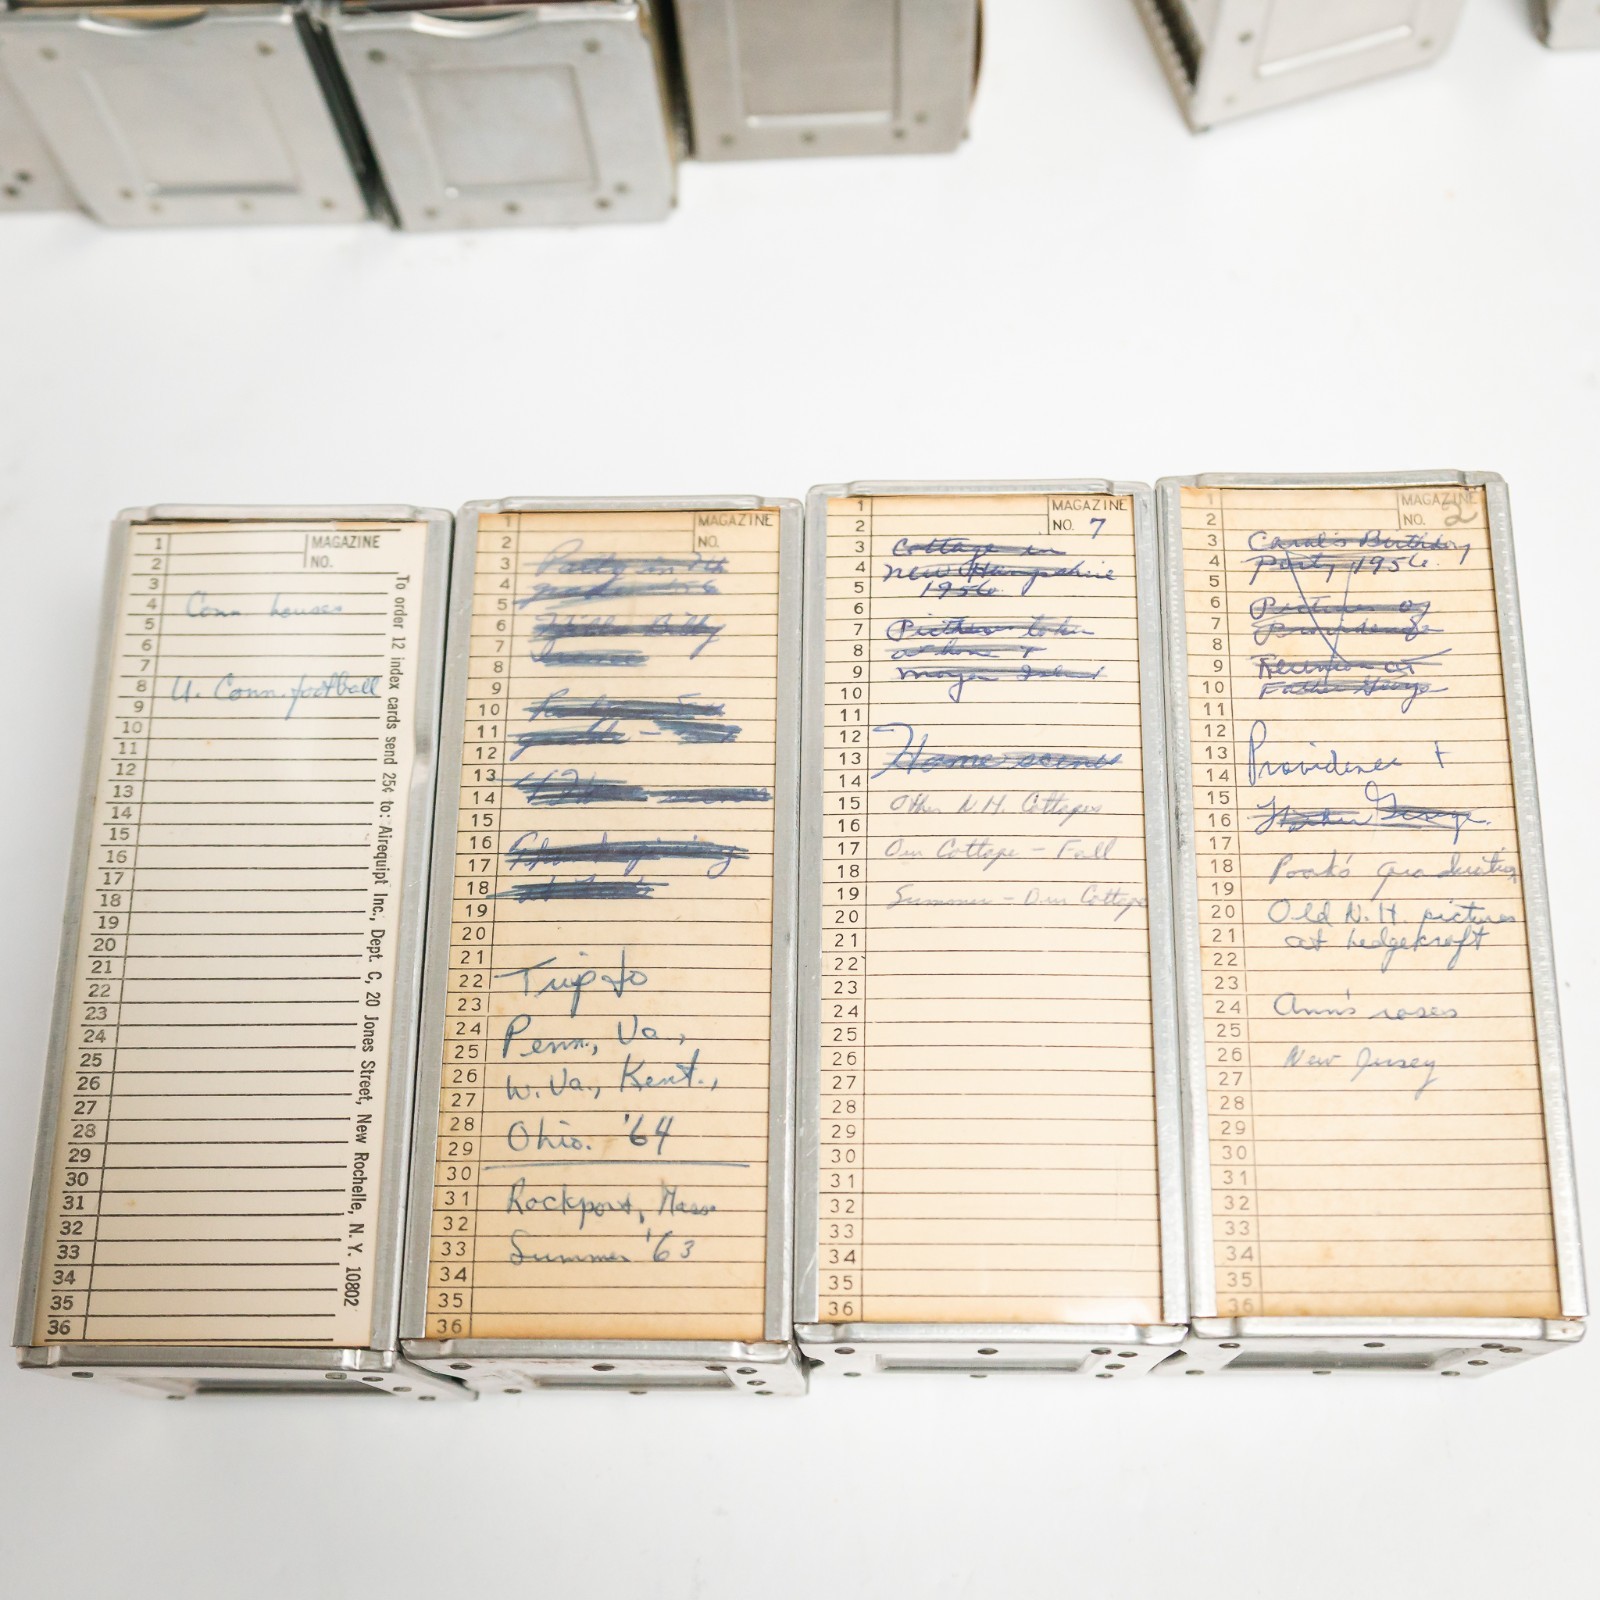 MAGAZINE
NO.
1
2
3
4
5
6
7
8
9
10
11
12
13
14
15
16
17
18
19
20
21
22
23
24
25
26
27
28
29
30
31
32
33
34
35
36
Conn. houses
U. Conn. football
To order 12 index cards send 25¢ to: Airequipt Inc., Dept. C, 20 Jones Street, New Rochelle, N. Y. 10802
MAGAZINE
NO.
1
2
3
4
5
6
7
8
9
10
11
12
13
14
15
16
17
18
19
20
21
22
23
24
25
26
27
28
29
30
31
32
33
34
35
36
Party in 7th
Billy
Thanksgiving
Trip to
Penn., Va.,
W. Va., Kent.,
Ohio. '64
Rockport, Mass
Summer '63
MAGAZINE
NO. 7
1
2
3
4
5
6
7
8
9
10
11
12
13
14
15
16
17
18
19
20
21
22
23
24
25
26
27
28
29
30
31
32
33
34
35
36
Cottage in
New Hampshire
1956
Pictures taken
at home +
Island
Home scenes
Other N.H. Cottages
Our Cottage - Fall
Summer - Our Cottage
MAGAZINE
NO. 2
1
2
3
4
5
6
7
8
9
10
11
12
13
14
15
16
17
18
19
20
21
22
23
24
25
26
27
28
29
30
31
32
33
34
35
36
Carol's Birthday
Party 1956.
Pictures of
Providence
Reunion at
Father George
Providence +
George.
graduation
Old N.H. pictures
at hedgekroft
Ann's roses
New Jersey